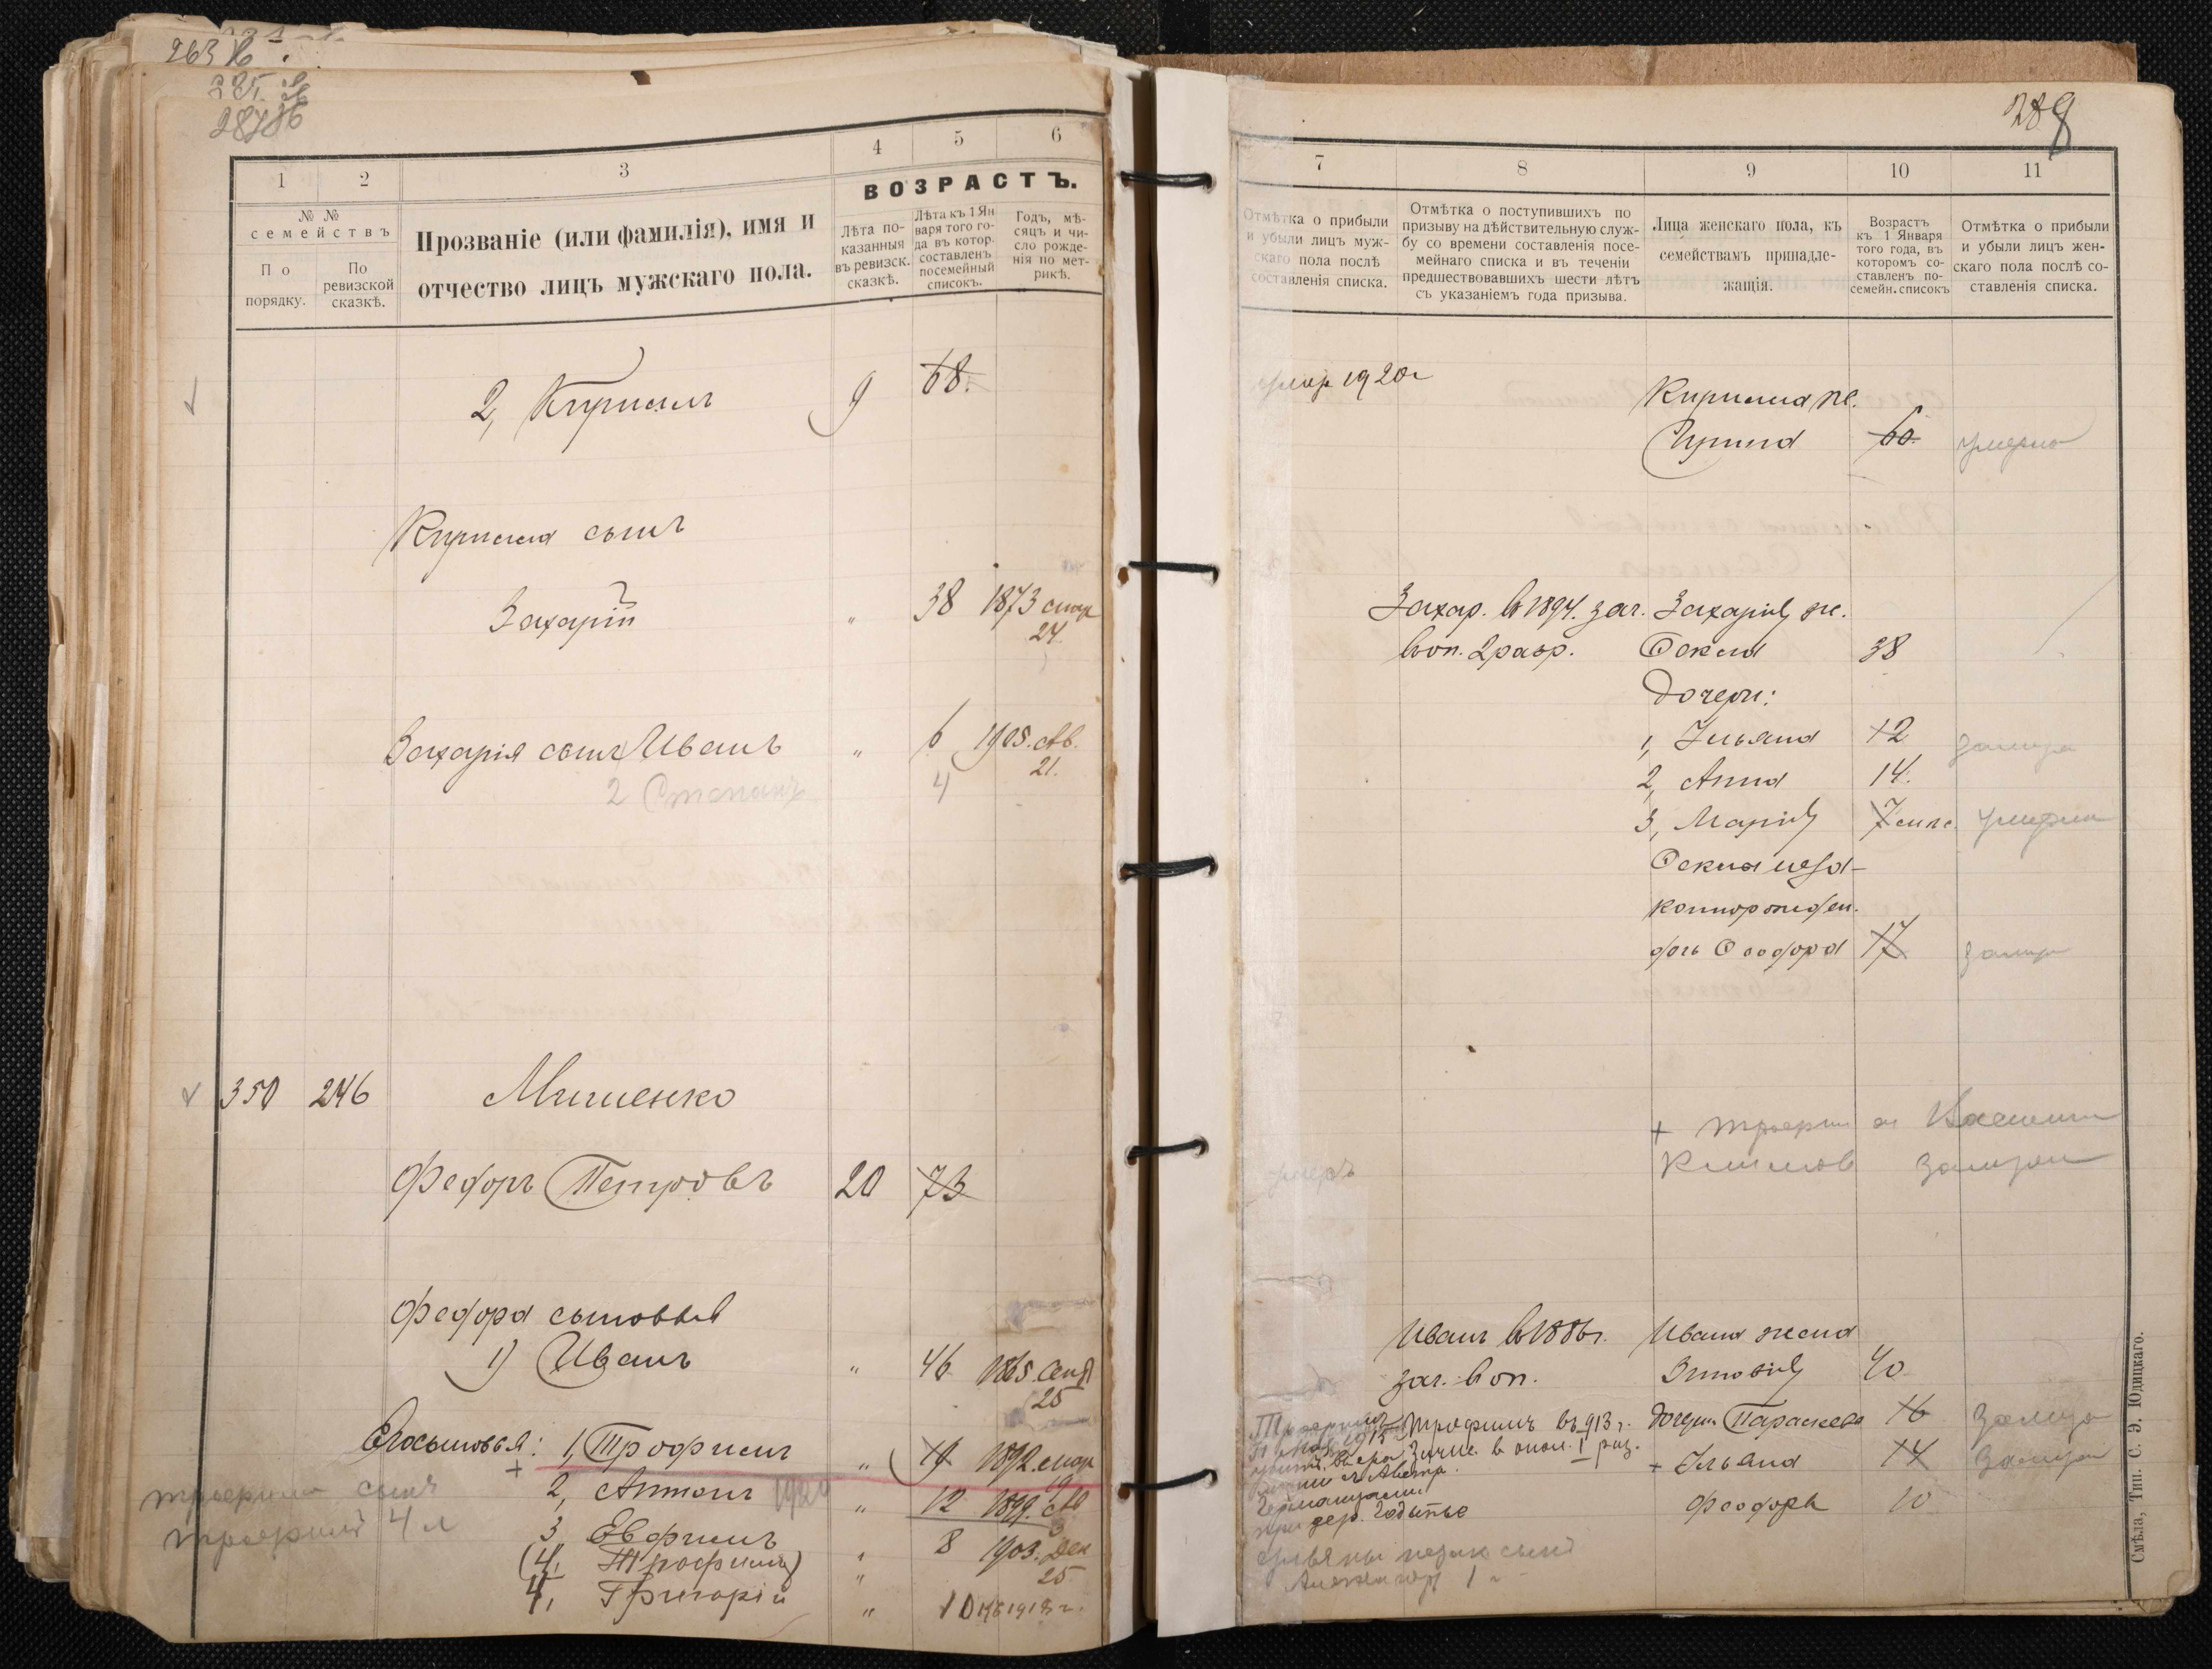 263
285
287
1 2 3 4 5 6
№ № семействъ
По порядку.
По ревизской сказкѣ.
Прозваніе (или фамилія), имя и
отчество лицъ мужскаго пола.
ВОЗРАСТЪ.
Лѣта показанныя въ ревизск. сказкѣ.
Лѣта къ 1 Января того года, въ котор. составленъ посемейный списокъ.
Годъ, мѣсяцъ и число рожденія по метрикѣ.
2, Кирилъ 9 68.
Кирила сынъ
Захарій " 38 1873 мар
24
Захарія сынъ Иванъ " 6 1905. Ав.
21.
2 Степанъ 4
350 246 Мишенко
Федоръ Петровъ 20 73
Федора сыновья
1) Иванъ " 46 1865. Сент
25
Его сыновья: 1, Трофимъ " 19 1892. мар
2, Антонъ 1920 " 12 1899.
трофима сынъ
3, Евфимъ " 8 1903. Дек
25
4 л
(4, Трофимъ) "
4, Григорій " 10 1918 г.
289
7 8 9 10 11
Отмѣтка о прибыли
и убыли лицъ мужскаго пола послѣ
составленія списка.
Отмѣтка о поступившихъ по
призыву на дѣйствительную службу со времени составленія посемейнаго списка и въ теченіи
предшествовавшихъ шести лѣтъ
съ указаніемъ года призыва.
Лица женскаго пола, къ
семействамъ принадлежащія.
Возрастъ
къ 1 Января
того года, въ
которомъ составленъ посемейн. списокъ
Отмѣтка о прибыли
и убыли лицъ женскаго пола послѣ составленія списка.
умер 1920 г
Кирила ж.
Ирина 60. умерла
Захар. в 1894. зач. Захарія ж.
в оп. 2 разр. Фекла 38
Дочери:
1, Ульяна 12 замуж
2, Анна 14.
3, Марія 7 умерла
Фекла неза-
коннорожден.
дочь Феодора 17 замуж
умеръ
Иванъ в 1886 г. Ивана жена
зач. в оп. Зиновія 40
Трофимъ въ 913 г. Дочери Параскева 16 замуж
Зачис. в опол. I раз. + Ульяна 14 замуж
Феодора 10
при дер.
Ульяны незак сынъ
Александр 1 г
Смѣла, Тип. С. Э. Юдицкаго.